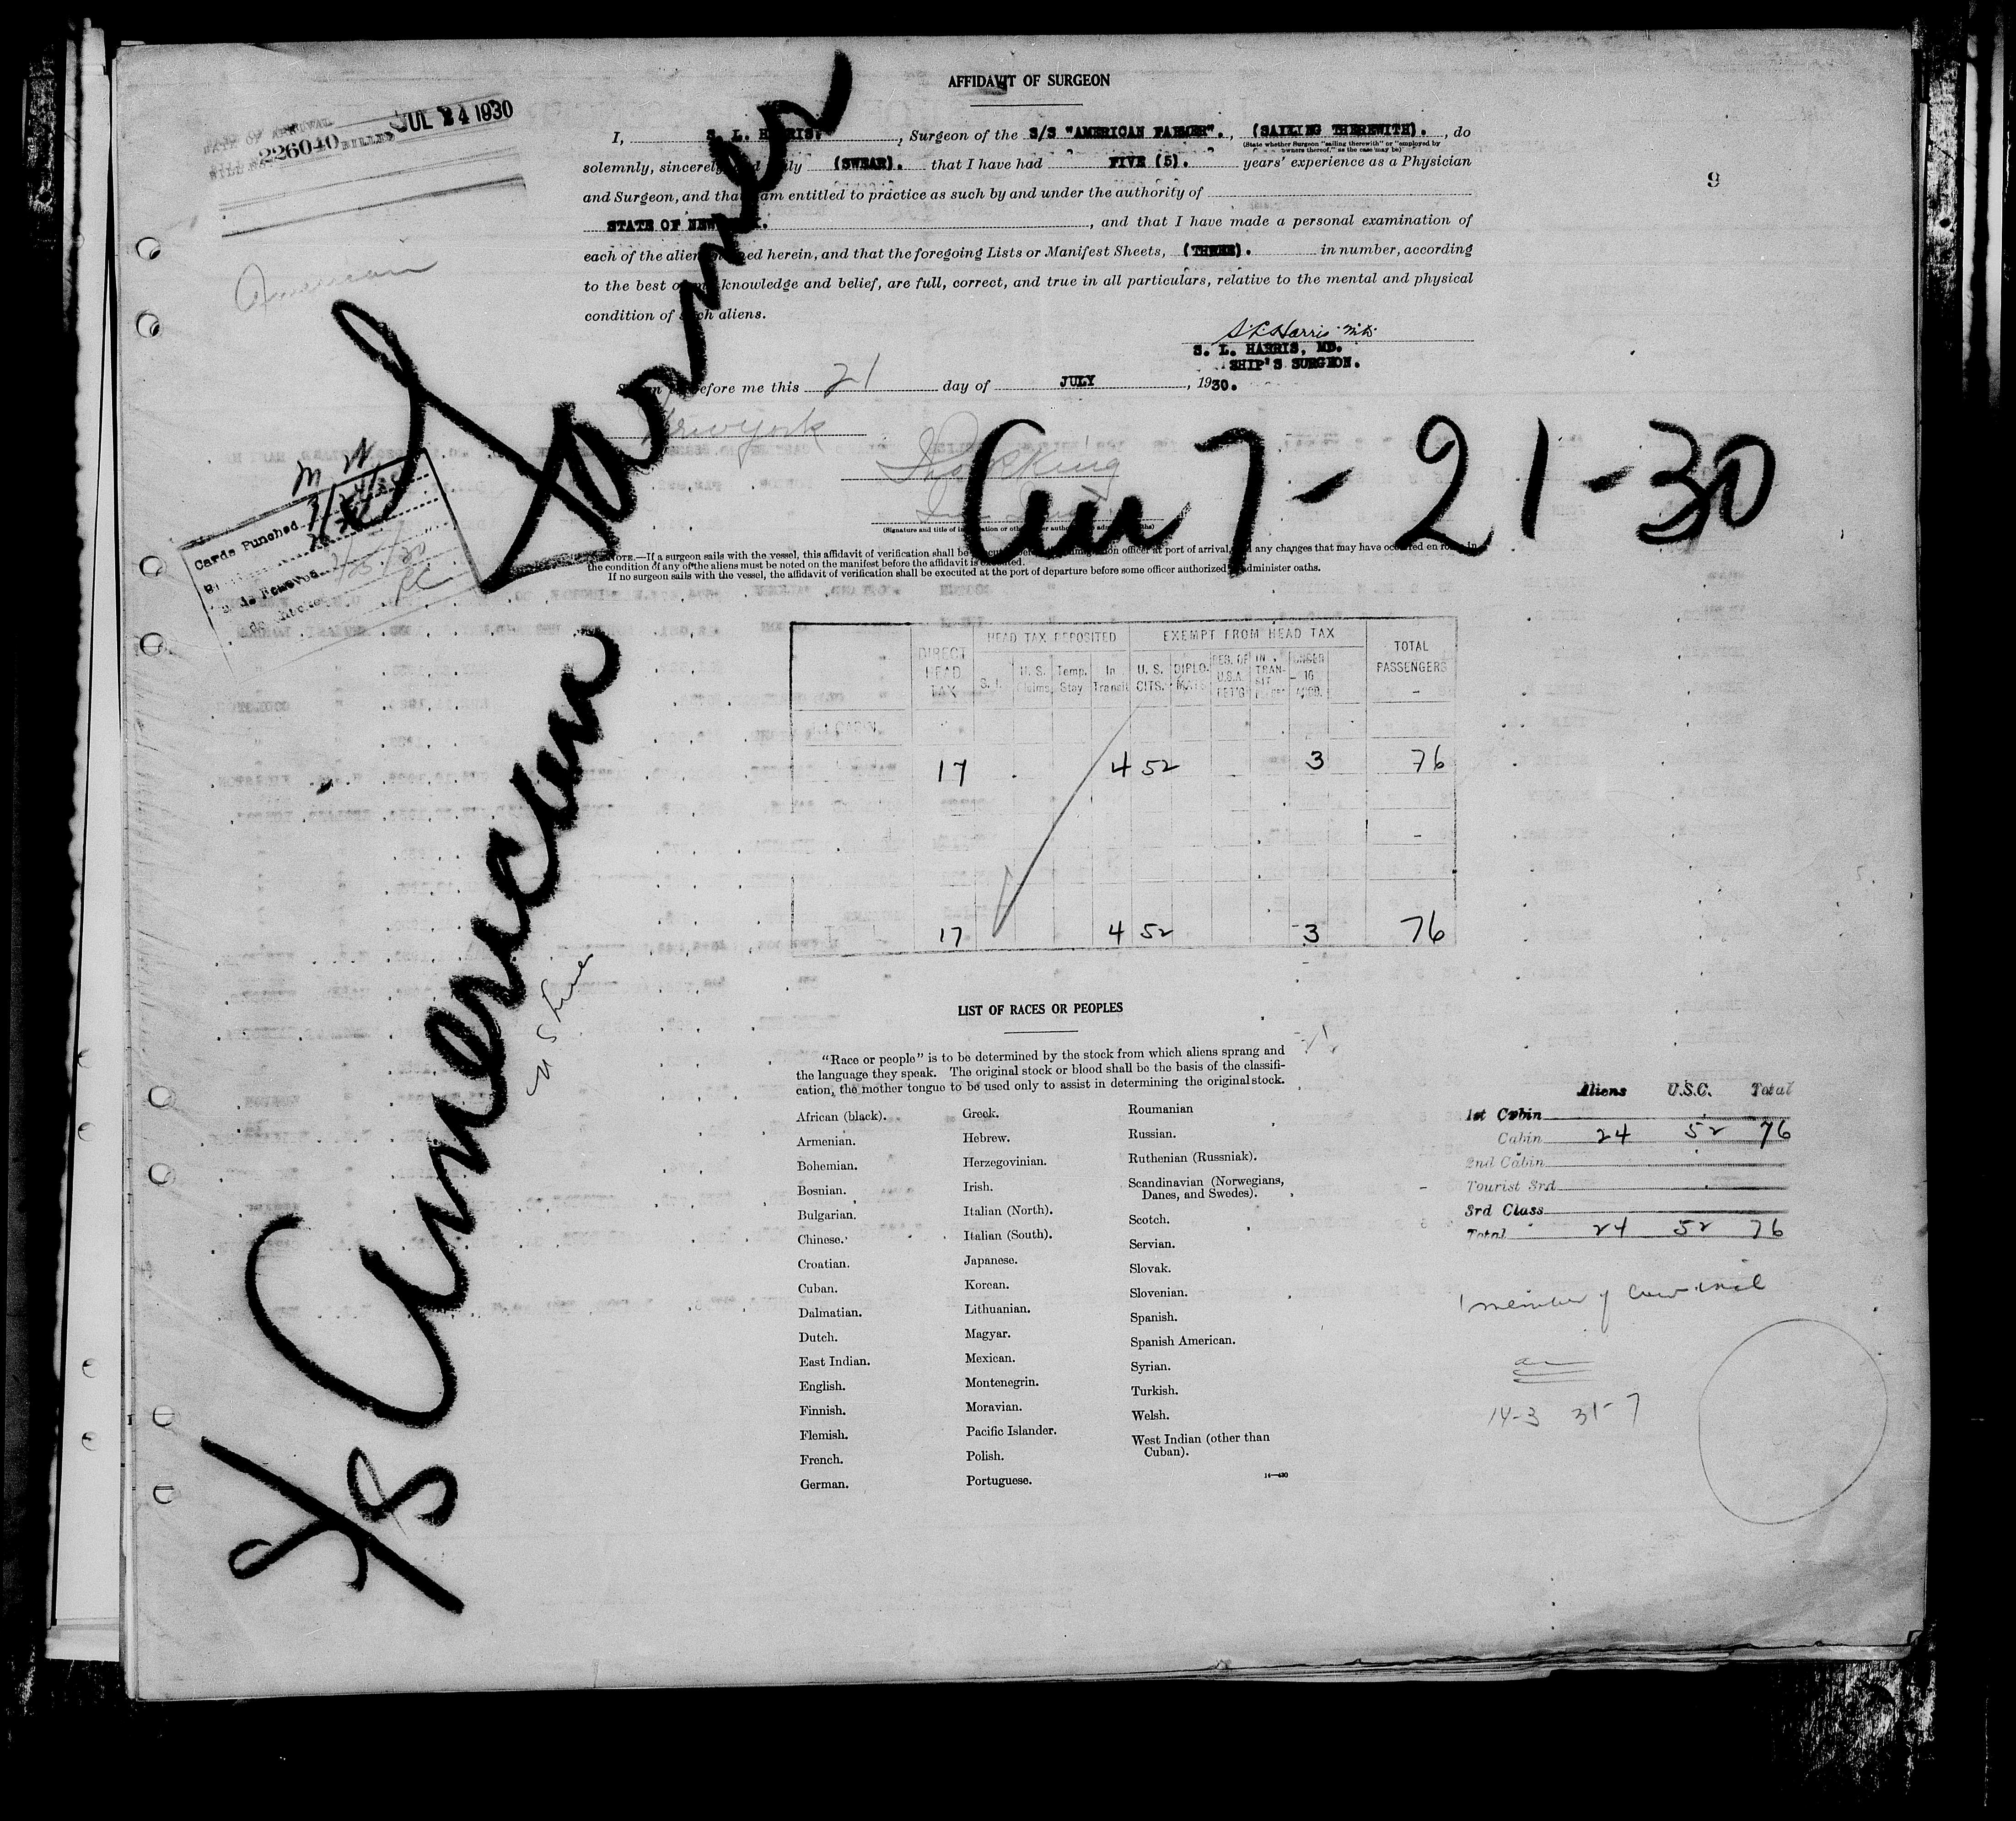 AFFIDAVIT OF SURGEON
226040 BILLED JUL 24 1930
I, S. L. HARRIS. , Surgeon of the S/S "AMERICAN FARMER". , (SAILING THEREWITH). , do
(State whether Surgeon "sailing therewith" or "employed by
owners thereof," as the case may be)
solemnly, sincerely, and truly (SWEAR). that I have had FIVE (5). years' experience as a Physician
and Surgeon, and that I am entitled to practice as such by and under the authority of
STATE OF NEW YORK. , and that I have made a personal examination of
each of the aliens named herein, and that the foregoing Lists or Manifest Sheets, (THREE). in number, according
to the best of my knowledge and belief, are full, correct, and true in all particulars, relative to the mental and physical
condition of such aliens.
9
American
S L Harris M.D.
S. L. HARRIS, MD.
SHIP'S SURGEON.
Sworn to before me this 21 day of JULY , 1930.
New York
(Signature and title of immigration officer or other officer authorized to administer oaths)
NOTE.—If a surgeon sails with the vessel, this affidavit of verification shall be executed before an immigration officer at port of arrival, and any changes that may have occurred en route in
the condition of any of the aliens must be noted on the manifest before the affidavit is executed.
If no surgeon sails with the vessel, the affidavit of verification shall be executed at the port of departure before some officer authorized to administer oaths.
Cards Punched
S/S American Farmer
Arr 7-21-30
U S Lines
HEAD TAX DEPOSITED EXEMPT FROM HEAD TAX
DIRECT HEAD TAX S. I. U. S. Claims Temp. Stay In Transit U. S. CITS. DIPLO- MATS RES. OF U.S.A. RET'G IN TRAN- SIT UNDER 16 ACCD. TOTAL PASSENGERS
17 4 52 3 76
17 4 52 3 76
LIST OF RACES OR PEOPLES
"Race or people" is to be determined by the stock from which aliens sprang and
the language they speak. The original stock or blood shall be the basis of the classifi-
cation, the mother tongue to be used only to assist in determining the original stock.
African (black).
Armenian.
Bohemian.
Bosnian.
Bulgarian.
Chinese.
Croatian.
Cuban.
Dalmatian.
Dutch.
East Indian.
English.
Finnish.
Flemish.
French.
German.
Greek.
Hebrew.
Herzegovinian.
Irish.
Italian (North).
Italian (South).
Japanese.
Korean.
Lithuanian.
Magyar.
Mexican.
Montenegrin.
Moravian.
Pacific Islander.
Polish.
Portuguese.
Roumanian
Russian.
Ruthenian (Russniak).
Scandinavian (Norwegians,
Danes, and Swedes).
Scotch.
Servian.
Slovak.
Slovenian.
Spanish.
Spanish American.
Syrian.
Turkish.
Welsh.
West Indian (other than
Cuban).
14—430
Aliens U.S.C. Total
1st Cabin
Cabin 24 52 76
2nd Cabin
Tourist 3rd
3rd Class
Total 24 52 76
member of crew
14-3 31-7